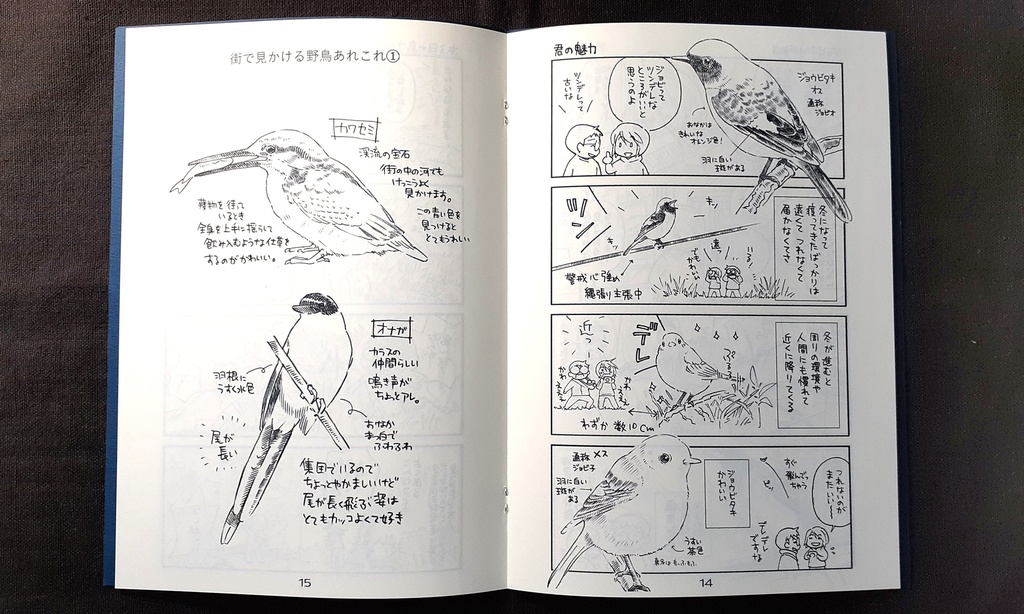 君の魅力
ジョビって
ツンデレな
ところがいいと
思うのよ
ツンデレって
古いな
ジョウビタキ
オス
通称
ジョビオ
おなかは
きれいな
オレンジ色!
羽に白い
斑がある
冬になって
渡ってきたばっかりは
遠くて つれなくて
届かなくてさ
ツン
キッ
キッ
遠っ
いる!
でも
かわいい
警戒心強め
縄張り主張中
冬が進むと
周りの環境や
人間にも慣れて
近くに降りてくる
デレ
近っ
かわ
ええ
わずか 数10cm
つれないのが
またいい〜
すぐ
飛んでっ
ちゃう
デレデレ
ですな
ジョウビタキ
かわいい
通称 メス
ジョビ子
羽に白い
斑がある
うすい
茶色
14
街で見かける野鳥あれこれ①
カワセミ
渓流の宝石
街の中の河でも
けっこうよく
見かけます。
この青い色を
見つけると
とてもうれしい
獲物を待って
いるとき
全身を上手に揺らして
飲み込むような仕草を
するのがかわいい。
オナガ
カラスの
仲間らしい
鳴き声が
ちょっとアレ。
羽根に
うすく水色
尾が
長い
おなか
まっ白で
ふわふわ
集団でいるので
ちょっとやかましいけど
尾が長く飛ぶ姿は
とてもカッコよくて好き
15